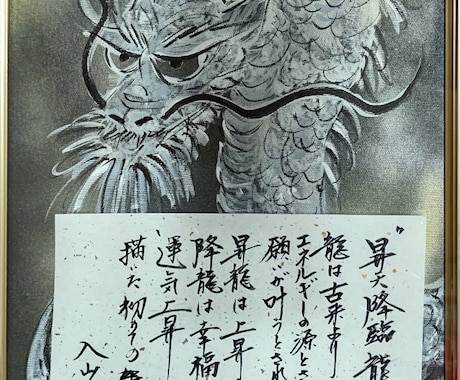 “昇天降臨龍
龍は古来より
エネルギーの源とさ
願いが叶うとされ
昇龍は上昇
降龍は幸福
運気上昇
描いた初めての
入山